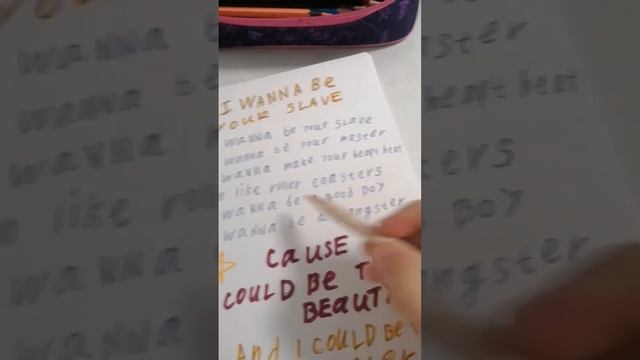 I WANNA BE
YOUR SLAVE
wanna be your slave
wanna be your master
wanna make your heart beat
like roller coasters
wanna be a good boy
wanna be a gangster
CAUSE
COULD BE
BEAUT
And I COULD BE